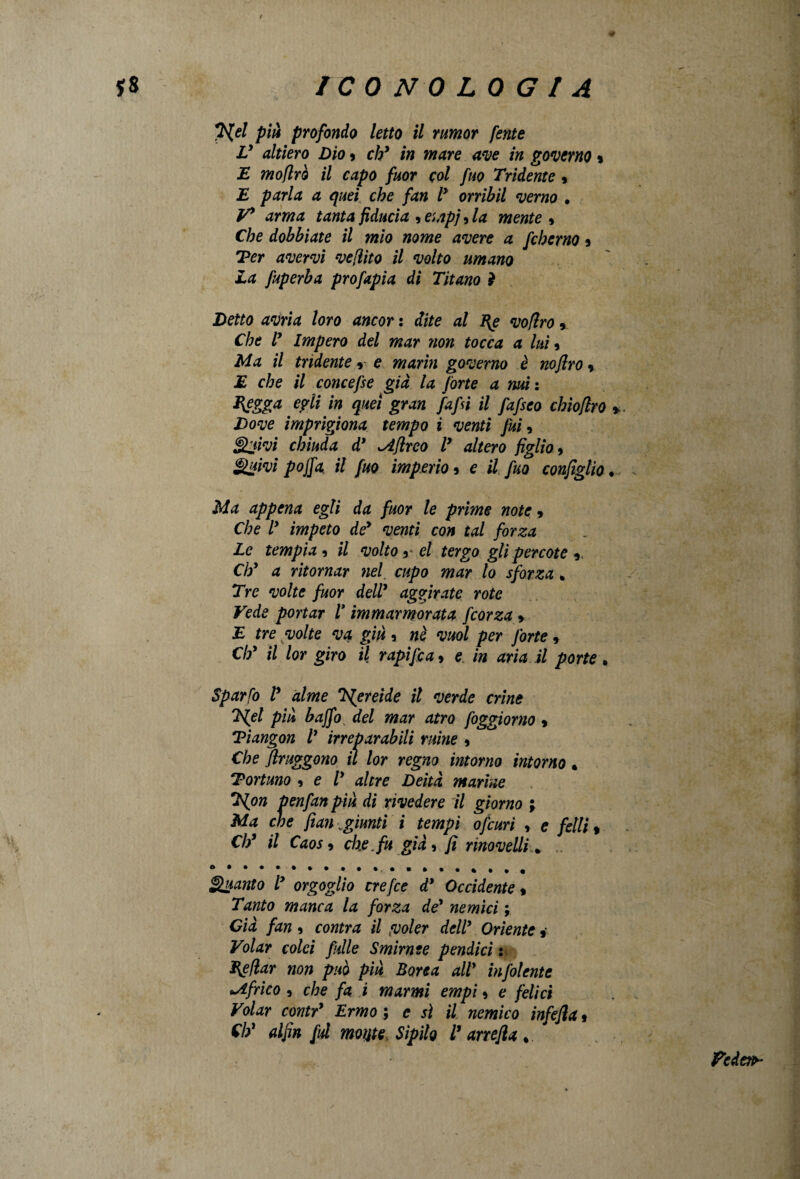 58 ICONOLOGIA
Nel più profondo letto il rumor ſente
L' altiero Dio, ch' in mare ave in governo,
E moſtrò il capo fuor col ſuo Tridente,
E parla a quei che fan l' orribil verno.
V' arma tanta fiducia, empj, la mente,
Che dobbiate il mio nome avere a ſcherno,
Per avervi veſtito il volto umano
La ſuperba proſapia di Titano?
Detto avria loro ancor: dite al Re voſtro,
Che l' Impero del mar non tocca a lui,
Ma il tridente, e marin governo è noſtro,
E che il conceſse già la ſorte a nui:
Regga egli in quei gran ſaſsi il ſaſseo chioſtro,
Dove imprigiona tempo i venti ſui,
Quivi chiuda d' Aſtreo l' altero figlio,
Quivi poſſa il ſuo imperio, e il ſuo conſiglio.
Ma appena egli da fuor le prime note,
Che l' impeto de' venti con tal forza
Le tempia, il volto, el tergo gli percote,
Ch' a ritornar nel cupo mar lo sforza.
Tre volte fuor dell' aggirate rote
Vede portar l' immarmorata ſcorza,
E tre volte va giù, nè vuol per ſorte,
Ch' il lor giro il rapiſca, e in aria il porte.
Sparſo l' alme Nereide il verde crine
Nel più baſſo del mar atro ſoggiorno,
Piangon l' irreparabili ruine,
Che ſtruggono il lor regno intorno intorno.
Portuno, e l' altre Deità marine
Non penſan più di rivedere il giorno;
Ma che ſian giunti i tempi oſcuri, e felli,
Ch' il Caos, che fu già, ſi rinovelli.
. . . . . . . . . . . . . . . . . .
Quanto l' orgoglio creſce d' Occidente,
Tanto manca la forza de' nemici;
Già fan, contra il voler dell' Oriente,
Volar colei ſulle Smirnee pendici:
Reſtar non può più Borea all' inſolente
Africo, che fa i marmi empi, e felici
Volar contr' Ermo; e sì il nemico infeſta,
Ch' alfin ſul monte Sipilo l' arreſta.
Veden-